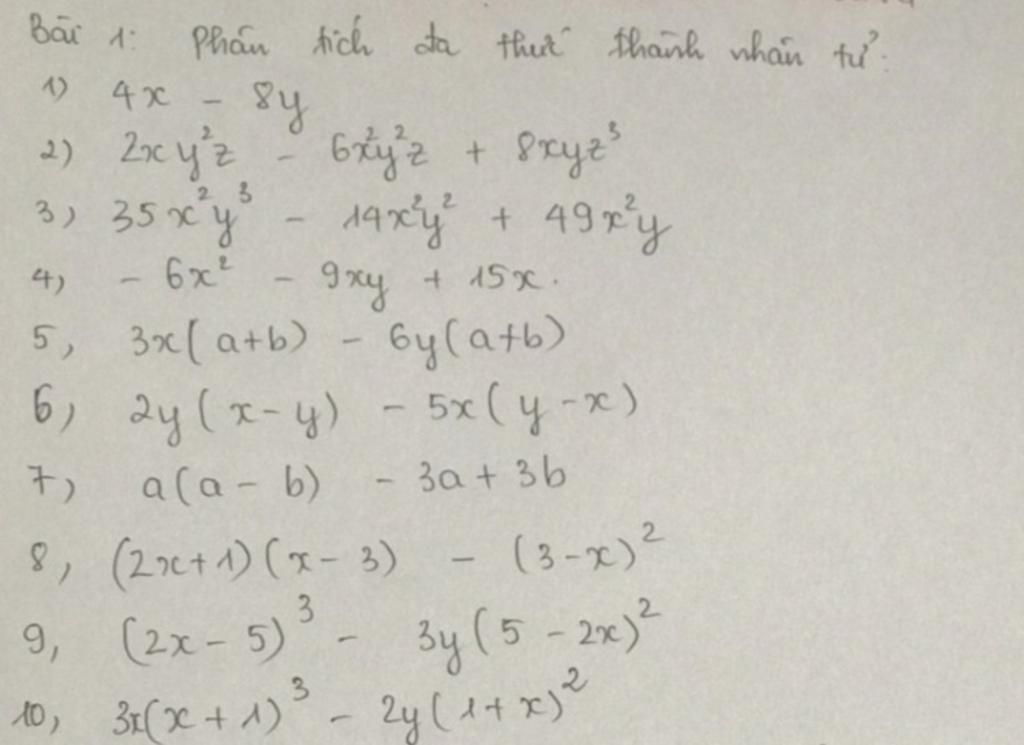 Bài 1: Phân tích đa thức thành nhân tử:
1) 4x - 8y
2) 2xy²z - 6x²y²z + 8xyz³
3) 35x²y³ - 14x²y² + 49x²y
4, - 6x² - 9xy + 15x.
5, 3x(a+b) - 6y(a+b)
6, 2y(x-y) - 5x(y-x)
7, a(a-b) - 3a + 3b
8, (2x+1)(x-3) - (3-x)²
9, (2x-5)³ - 3y(5-2x)²
10, 3x(x+1)³ - 2y(1+x)²